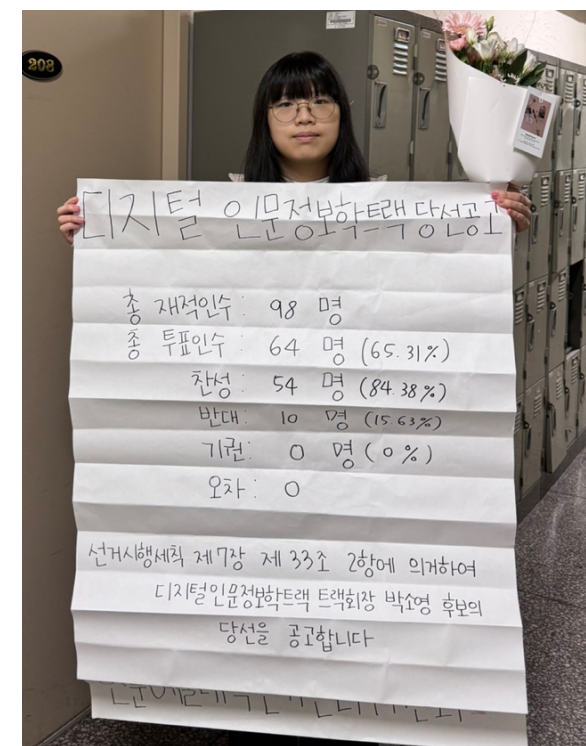 208
디지털 인문정보학트랙 당선공고
총 재적인수 : 98 명
총 투표인수 : 64 명 (65.31%)
찬성 : 54 명 (84.38%)
반대 : 10 명 (15.63%)
기권 : 0 명 (0%)
오차 : 0
선거시행세칙 제7장 제33조 2항에 의거하여
디지털인문정보학트랙 트랙회장 박소영 후보의
당선을 공고합니다